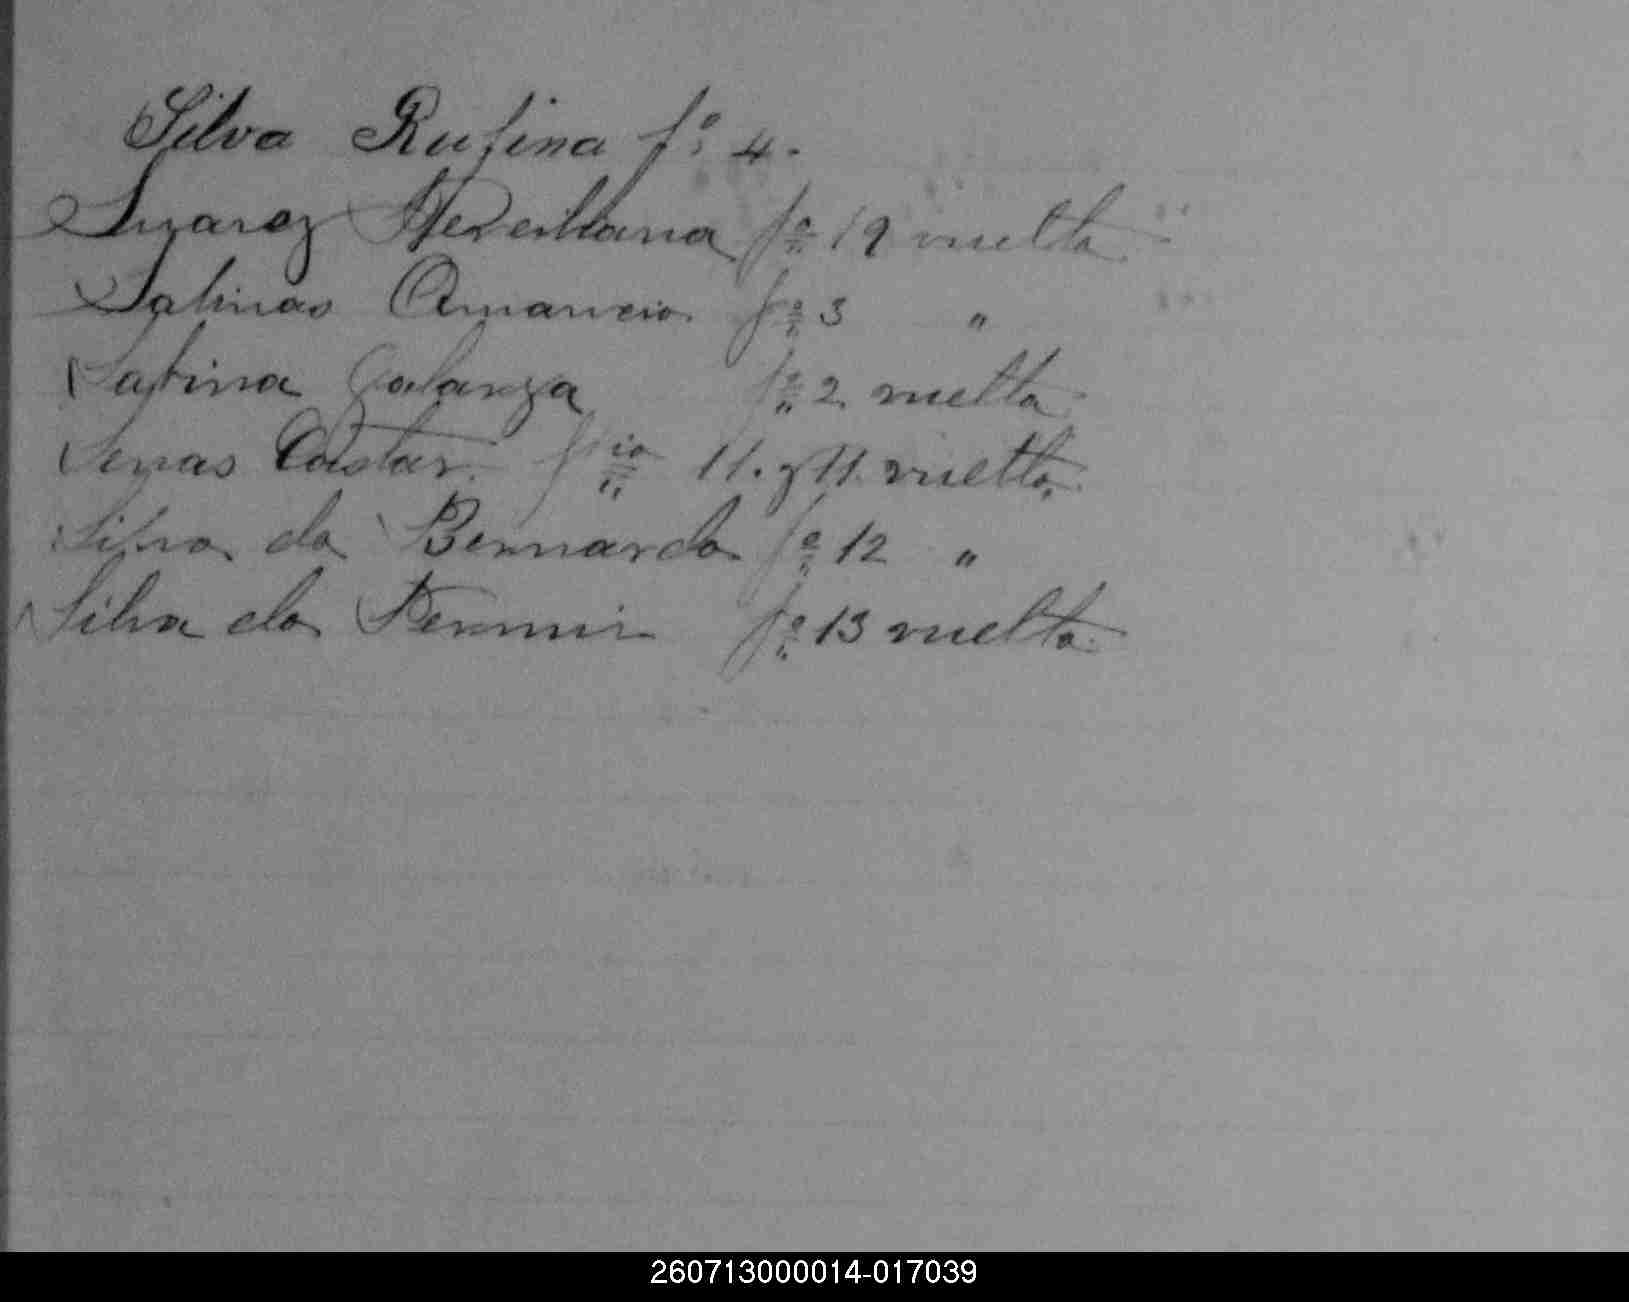 Silva Rufina fº 4.
Suarez fº 19 vuelta
Salinas Amancio fº 3 "
Sabina Galarza fº 2 vuelta
Senas Castar fio 11. y 11. vuelta
Silva da Bernarda fº 12 "
Silva da Fermin fº 13 vuelta
260713000014-017039